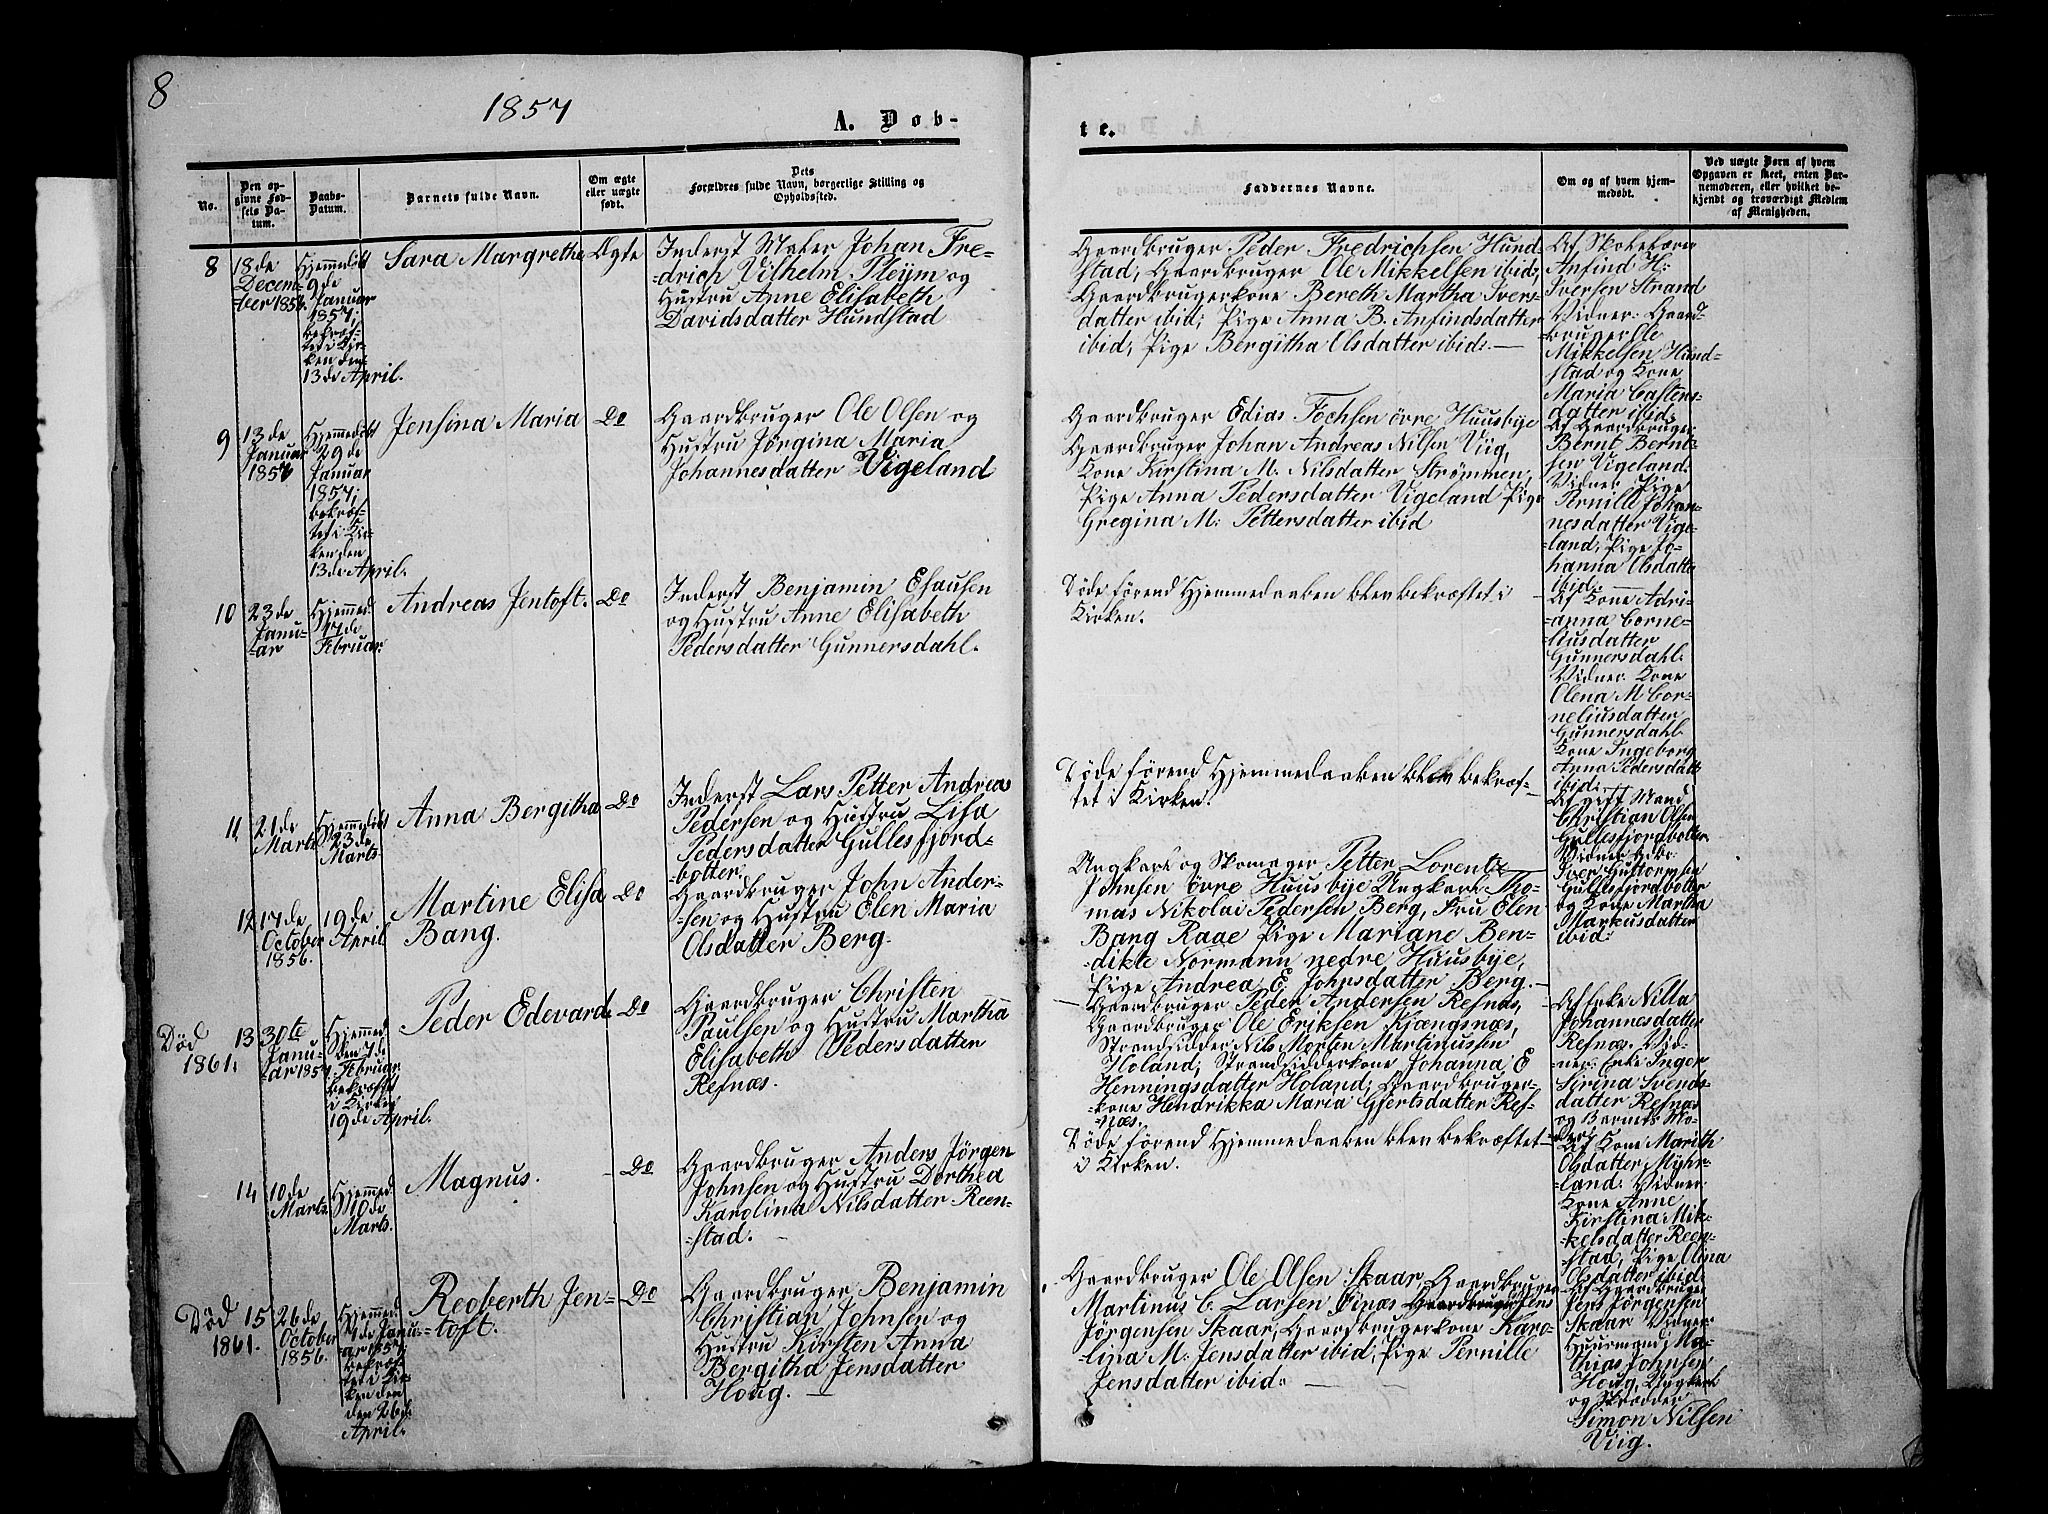 8
1857
A. Døb-
te.
No.
Den op-
givne Fød-
sels Da-
tum.
Daabs-
Datum.
Barnets fulde Navn.
Om ægte
eller uægte
født.
Dets
Forældres fulde Navn, borgerlige Stilling og
Opholdssted.
Faddernes Navne.
Om og af hvem hjem-
medøbt.
Ved uægte Børn af hvem
Opgaven er skeet, enten Bar-
nemoderen, eller hvilket be-
kjendt og troværdigt Medlem
af Menigheden.
8
18de
Decem-
ber 1856.
Hjemmedöbt
9de
Januar
1857;
bekræf-
tet i Kir-
ken den
13de April.
Sara Margrethe
Ægte
Inderst Maler Johan Fre-
drich Vilhelm Pleÿm og
Hustru Anne Elisabeth
Davidsdatter Hundstad
Gaardbruger Peder Fredrichsen Hund
stad, Gaardbruger Ole Mikkelsen ibid,
Gaardbrugerkone Bereth Martha Ivers-
datter ibid; Pige Anna B. Anfindsdatter
ibid, Pige Bergitha Olsdatter ibid.
Af Skolelærer
Anfind H:
Iversen Strand
Vidner: Gaard-
bruger Ole
Mikkelsen Hund-
stad og Kone
Maria Castens-
datter ibid.
9
13de
Januar
1857
Hjemmedöbt
29de
Januar
1857;
bekræf-
tet i Kir-
ken den
13de April.
Jensina Maria
Do
Gaardbruger Ole Olsen og
Hustru Jørgina Maria
Johannesdatter Vigeland
Gaardbruger Edias Fochsen övre Huusbÿe
Gaardbruger Johan Andreas Nilsen Viig,
Kone Kirstina M. Nilsdatter Strømmen,
Pige Anna Pedersdatter Vigeland Pige
Gregina M: Pettersdatter ibid
Af Gaardbruger
Bernt Bernt-
sen Vigeland.
Vidner Pige
Pernille Johan-
nesdatter Vige-
land, Pige Jo-
hanna Olsdatter
ibid.
10
23de
Janu-
ar
Hjemmed
17de
Februar.
Andreas Jentoft.
Do
Inderst Benjamin Esausen
og Hustru Anne Elisabeth
Pedersdatter Gunnersdahl.
Döde förend Hjemmedaaben blev bekræftet i
Kirken.
Af Kone Adri-
anna Corne-
liusdatter
Gunnersdahl.
Vidner. Kone
Olena M Cor-
neliusdatter
Gunnersdahl
Kone Ingeborg
Anna Pedersdatt
ibid.
11
21de
Marts
Hjemmedöbt
23de
Marts.
Anna Bergitha
Do
Inderst Lars Petter Andreas
Pedersen og Hustru Lisa
Pedersdatter Gullesfjord-
botter.
Döde förend Hjemmedaaben blev bekræf-
tet i Kirken.
Af gift Mand
Christian Olsen
Gullesfjordbotter
Vidner Gdbr.
Iver Guttormsen
Gullesfjordbotter
og Kone Martha
Markusdatter
ibid.
12
17de
October
1856.
19de
April
Martine Elisa
Bang.
Do
Gaardbruger John Ander-
sen og Hustru Elen Maria
Olsdatter Berg.
Ungkarl og Skomager Petter Lorentz
Johnsen övre Huusbÿe Ungkarl Tho-
mas Nikolai Pedersen Berg, Fru Elen
Bang Raae Pige Mariane Ben-
dikte Normann nedre Huusbÿe,
Pige Andrea E Johnsdatter Berg.
Död
1861.
13
30te
Janu-
ar 1857.
Hjemmed
den 7de
Februar
bekræftet
i Kirken
19de April.
Peder Edevard.
Do
Gaardbruger Christen
Paulsen og Hustru Martha
Elisabeth Pedersdatter
Refnæs.
Gaardbruger Peder Andersen Refnæs,
Gaardbruger Ole Eriksen Kjængsnæs,
Strandsidder Nils Morten Martinussen
Holand; Strandsidderkone Johanna E
Henningsdatter Holand; Gaardbruger-
kone Hendrikka Maria Gjertsdatter Ref-
næs.
Af Enke Nilla
Johannesdatter
Refnæs. Vid-
ner: Enke Inger
Sirina Svends-
datter Refnæs
og Barnets Mo-
der.
14
10de
Marts.
Hjemmed
10de
Marts.
Magnus.
Do
Gaardbruger Anders Jørgen
Johnsen og Hustru Dorthea
Karolina Nilsdatter Reen-
stad.
Döde förend Hjemmedaaben blev bekræftet
i Kirken.
Af Kone Marith
Olsdatter Mÿhr-
land. Vidner
Kone Anne
Kirstina Mik-
kelsdatter Reen-
stad, Pige Olina
Olsdatter ibid.
Död
1861.
15
26de
October
1856.
Hjemmed
1de Janu-
ar 1857;
bekræf-
tet i Kir-
ken den
den 26de
April.
Reoberth Jen-
toft.
Do
Gaardbruger Benjamin
Christian Johnsen og
Hustru Kirsten Anna
Bergitha Jensdatter
Houg.
Gaardbruger Ole Olsen Skaar, Gaardbruger
Martinus C. Larsen Finæs Gaardbruger Jens
Jörgensen Skaar, Gaardbrugerkone Karo-
lina M. Jensdatter ibid, Pige Pernille
Jensdatter ibid.
Af Gaardbruger
Jens Jörgensen
Skaar Vidner
Huusmand Ma-
thias Johnsen
Houg, Ungkarl
og Skrædder
Simon Nilsen
Viig.